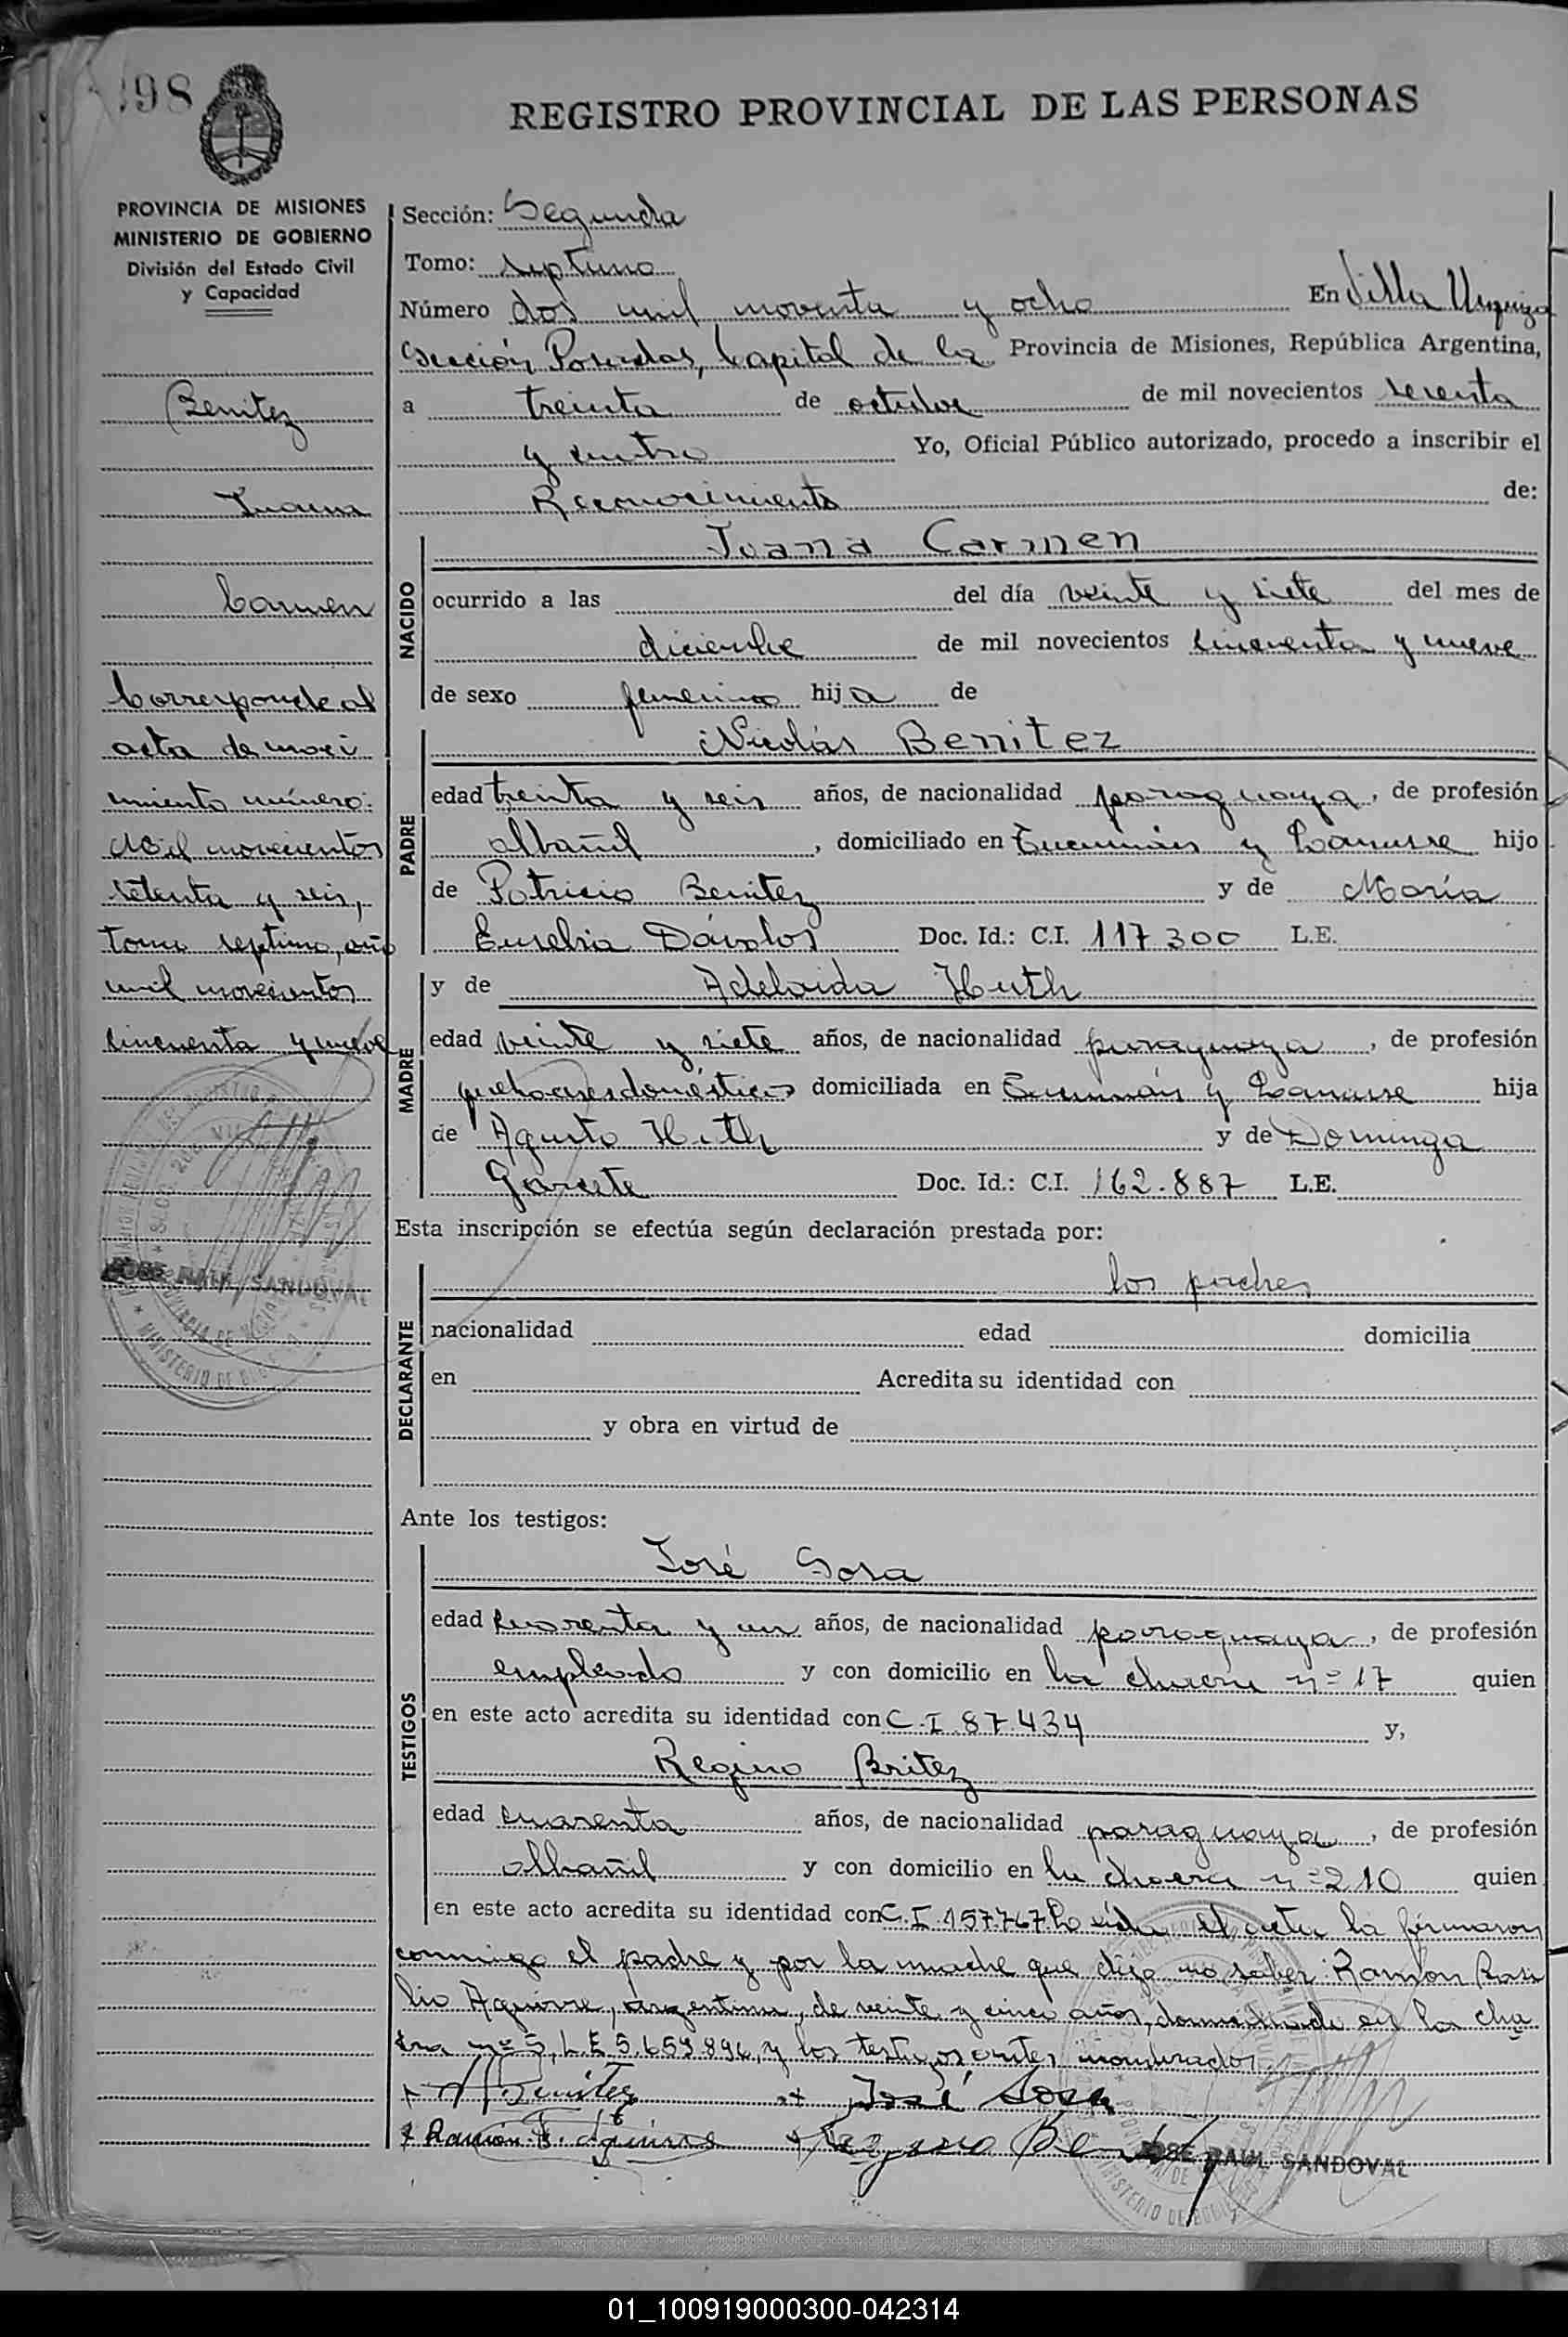 98
REGISTRO PROVINCIAL DE LAS PERSONAS
PROVINCIA DE MISIONES
MINISTERIO DE GOBIERNO
División del Estado Civil
y Capacidad
Benitez
Juana
Carmen
Corresponde al
acta de naci
miento número:
dos mil novecientos
setenta y seis,
tomo septimo, año
mil novecientos
cincuenta y nueve
JOSE RAUL SANDOVAL
Sección: Segunda
Tomo: septimo
Número dos mil noventa y ocho En Villa Urquiza
Sección Posadas, Capital de la Provincia de Misiones, República Argentina,
a treinta de octubre de mil novecientos sesenta
y cuatro Yo, Oficial Público autorizado, procedo a inscribir el
Reconocimiento de:
NACIDO
Juana Carmen
ocurrido a las del día veinte y siete del mes de
diciembre de mil novecientos cincuenta y nueve
de sexo femenino hija de
PADRE
Nicolás Benitez
edad treinta y seis años, de nacionalidad paraguaya, de profesión
albañil, domiciliado en Tucumán y Lanusse hijo
de Patricio Benitez y de María
Eusebia Dávalos Doc. Id.: C.I. 117.300 L.E.
MADRE
y de Adelaida Huth
edad veinte y siete años, de nacionalidad paraguaya, de profesión
quehaceres domésticos domiciliada en Tucumán y Lanusse hija
de Agusto Huth y de Dominga
Garcete Doc. Id.: C.I. 162.887 L.E.
Esta inscripción se efectúa según declaración prestada por:
DECLARANTE
los padres
nacionalidad edad domicilia
en Acredita su identidad con
y obra en virtud de
Ante los testigos:
TESTIGOS
José Sosa
edad cuarenta y un años, de nacionalidad paraguaya, de profesión
empleado y con domicilio en la chacra nº 17 quien
en este acto acredita su identidad con C.I. 87.434 y,
Regino Britez
edad cuarenta años, de nacionalidad paraguaya, de profesión
albañil y con domicilio en la chacra nº 210 quien
en este acto acredita su identidad con C.I. 157.767. Leída el acta la firmaron
conmigo el padre y por la madre que dijo no saber Ramón
Aguirre, argentino, de veinte y cinco años, domiciliado en la cha
cra nº 5, L.E 5.659.896, y los testigos antes nombrados.
N Benitez José Sosa
Ramón B. Aguirre Regino
JOSE RAUL SANDOVAL
01_100919000300-042314